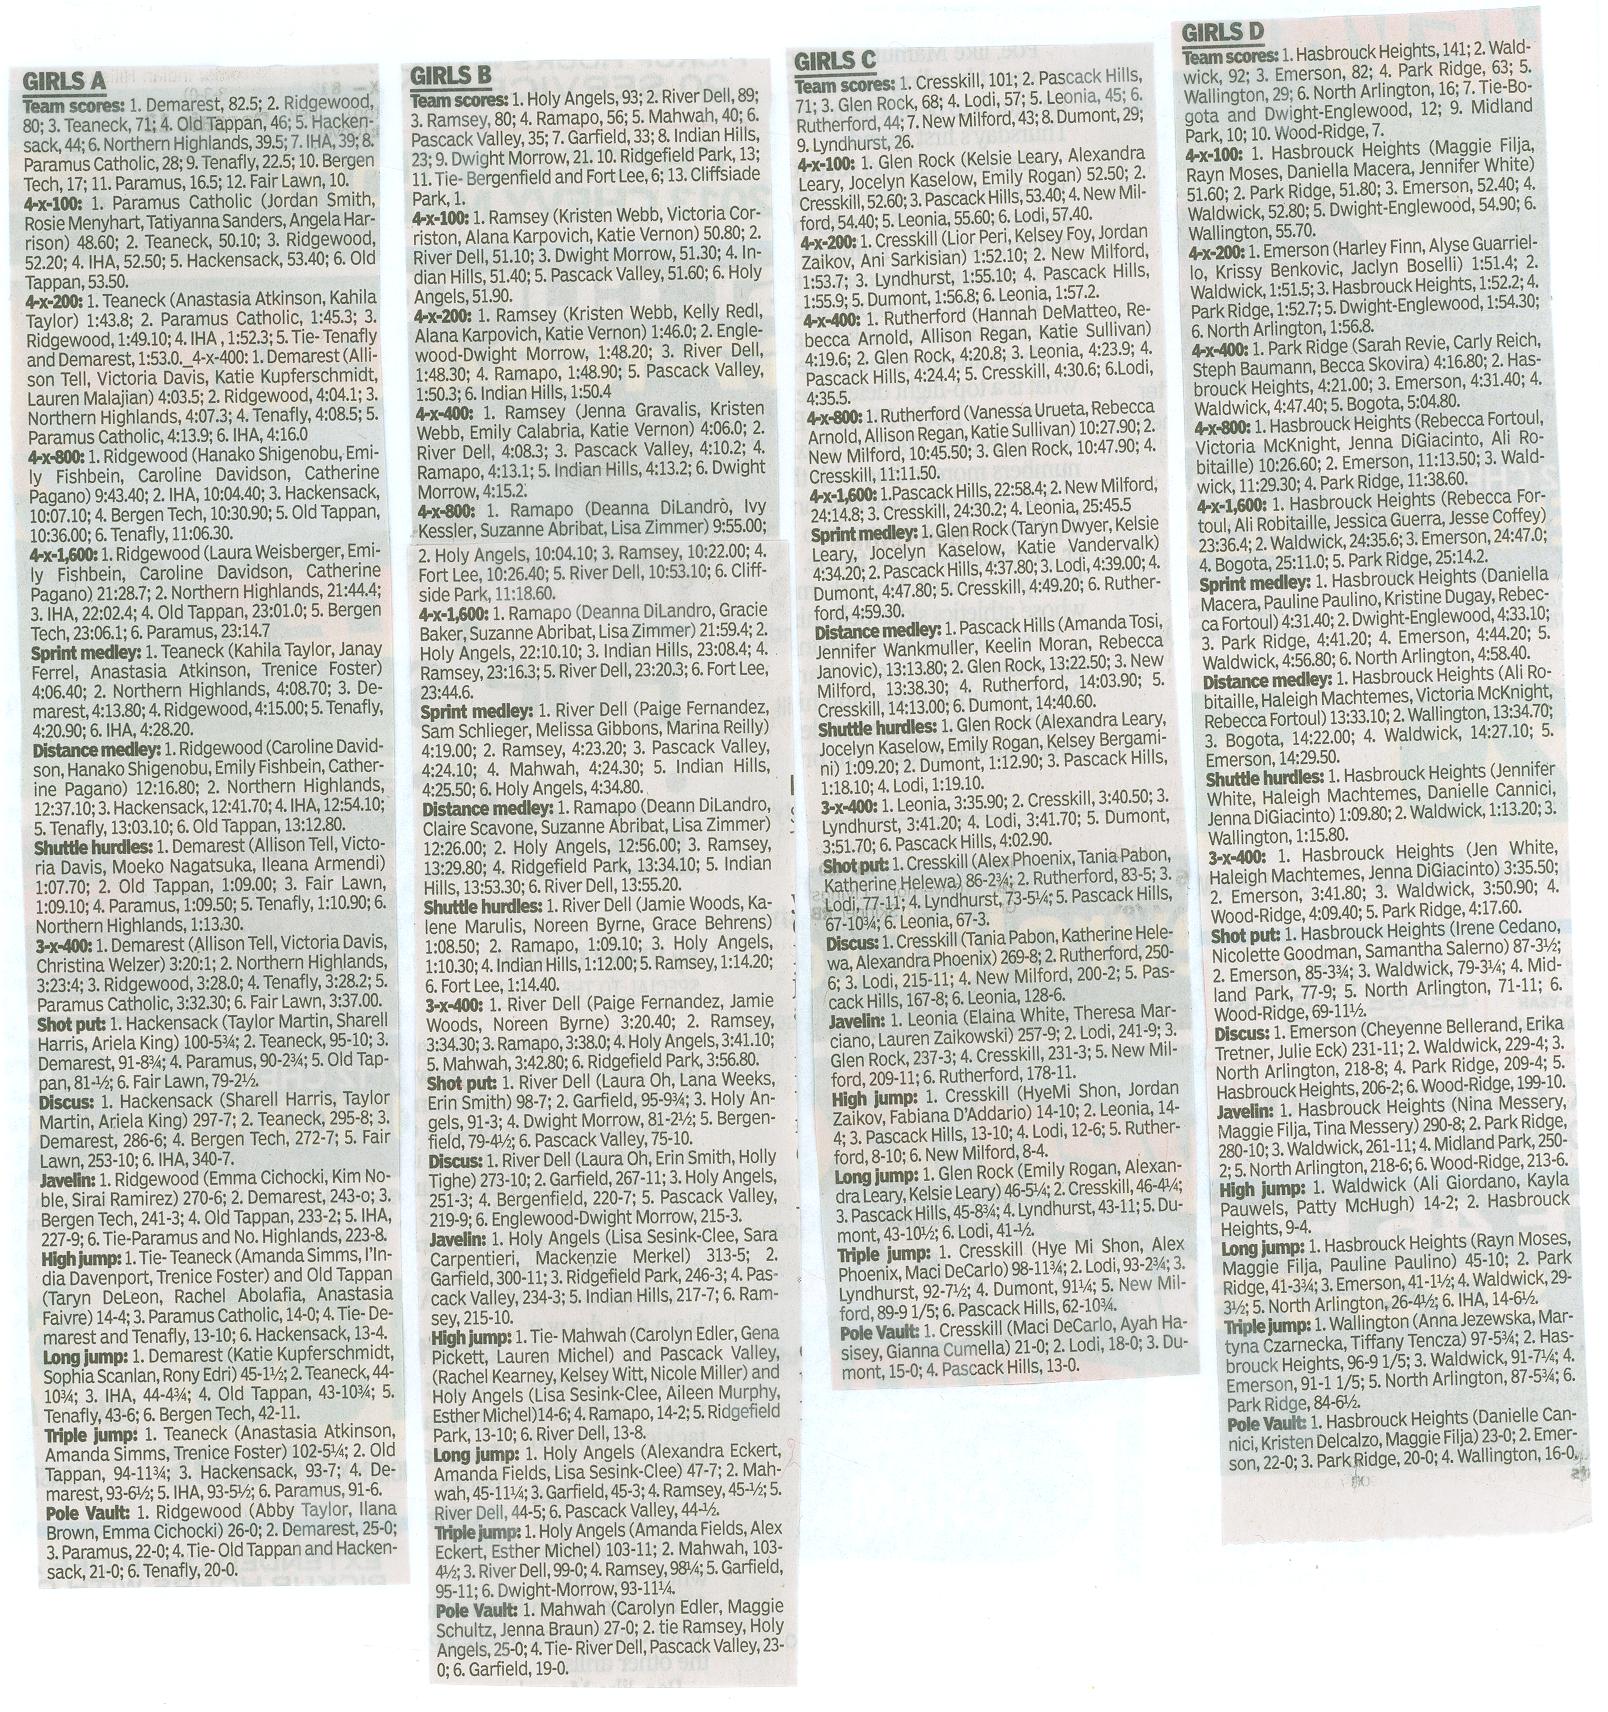 GIRLS A
Team scores: 1. Demarest, 82.5; 2. Ridgewood,
80; 3. Teaneck, 71; 4. Old Tappan, 46; 5. Hacken-
sack, 44; 6. Northern Highlands, 39.5; 7. IHA, 39; 8.
Paramus Catholic, 28; 9. Tenafly, 22.5; 10. Bergen
Tech, 17; 11. Paramus, 16.5; 12. Fair Lawn, 10.
4-x-100: 1. Paramus Catholic (Jordan Smith,
Rosie Menyhart, Tatiyanna Sanders, Angela Har-
rison) 48.60; 2. Teaneck, 50.10; 3. Ridgewood,
52.20; 4. IHA, 52.50; 5. Hackensack, 53.40; 6. Old
Tappan, 53.50.
4-x-200: 1. Teaneck (Anastasia Atkinson, Kahila
Taylor) 1:43.8; 2. Paramus Catholic, 1:45.3; 3.
Ridgewood, 1:49.10; 4. IHA , 1:52.3; 5. Tie- Tenafly
and Demarest, 1:53.0._4-x-400: 1. Demarest (Alli-
son Tell, Victoria Davis, Katie Kupferschmidt,
Lauren Malajian) 4:03.5; 2. Ridgewood, 4:04.1; 3.
Northern Highlands, 4:07.3; 4. Tenafly, 4:08.5; 5.
Paramus Catholic, 4:13.9; 6. IHA, 4:16.0
4-x-800: 1. Ridgewood (Hanako Shigenobu, Emi-
ly Fishbein, Caroline Davidson, Catherine
Pagano) 9:43.40; 2. IHA, 10:04.40; 3. Hackensack,
10:07.10; 4. Bergen Tech, 10:30.90; 5. Old Tappan,
10:36.00; 6. Tenafly, 11:06.30.
4-x-1,600: 1. Ridgewood (Laura Weisberger, Emi-
ly Fishbein, Caroline Davidson, Catherine
Pagano) 21:28.7; 2. Northern Highlands, 21:44.4;
3. IHA, 22:02.4; 4. Old Tappan, 23:01.0; 5. Bergen
Tech, 23:06.1; 6. Paramus, 23:14.7
Sprint medley: 1. Teaneck (Kahila Taylor, Janay
Ferrel, Anastasia Atkinson, Trenice Foster)
4:06.40; 2. Northern Highlands, 4:08.70; 3. De-
marest, 4:13.80; 4. Ridgewood, 4:15.00; 5. Tenafly,
4:20.90; 6. IHA, 4:28.20.
Distance medley: 1. Ridgewood (Caroline David-
son, Hanako Shigenobu, Emily Fishbein, Cather-
ine Pagano) 12:16.80; 2. Northern Highlands,
12:37.10; 3. Hackensack, 12:41.70; 4. IHA, 12:54.10;
5. Tenafly, 13:03.10; 6. Old Tappan, 13:12.80.
Shuttle hurdles: 1. Demarest (Allison Tell, Victo-
ria Davis, Moeko Nagatsuka, Ileana Armendi)
1:07.70; 2. Old Tappan, 1:09.00; 3. Fair Lawn,
1:09.10; 4. Paramus, 1:09.50; 5. Tenafly, 1:10.90; 6.
Northern Highlands, 1:13.30.
3-x-400: 1. Demarest (Allison Tell, Victoria Davis,
Christina Welzer) 3:20:1; 2. Northern Highlands,
3:23:4; 3. Ridgewood, 3:28.0; 4. Tenafly, 3:28.2; 5.
Paramus Catholic, 3:32.30; 6. Fair Lawn, 3:37.00.
Shot put: 1. Hackensack (Taylor Martin, Sharell
Harris, Ariela King) 100-5¾; 2. Teaneck, 95-10; 3.
Demarest, 91-8¾; 4. Paramus, 90-2¾; 5. Old Tap-
pan, 81-½; 6. Fair Lawn, 79-2½.
Discus: 1. Hackensack (Sharell Harris, Taylor
Martin, Ariela King) 297-7; 2. Teaneck, 295-8; 3.
Demarest, 286-6; 4. Bergen Tech, 272-7; 5. Fair
Lawn, 253-10; 6. IHA, 340-7.
Javelin: 1. Ridgewood (Emma Cichocki, Kim No-
ble, Sirai Ramirez) 270-6; 2. Demarest, 243-0; 3.
Bergen Tech, 241-3; 4. Old Tappan, 233-2; 5. IHA,
227-9; 6. Tie-Paramus and No. Highlands, 223-8.
High jump: 1. Tie- Teaneck (Amanda Simms, I'In-
dia Davenport, Trenice Foster) and Old Tappan
(Taryn DeLeon, Rachel Abolafia, Anastasia
Faivre) 14-4; 3. Paramus Catholic, 14-0; 4. Tie-De-
marest and Tenafly, 13-10; 6. Hackensack, 13-4.
Long jump: 1. Demarest (Katie Kupferschmidt,
Sophia Scanlan, Rony Edri) 45-1½; 2. Teaneck, 44-
10¾; 3. IHA, 44-4¾; 4. Old Tappan, 43-10¾; 5.
Tenafly, 43-6; 6. Bergen Tech, 42-11.
Triple jump: 1. Teaneck (Anastasia Atkinson,
Amanda Simms, Trenice Foster) 102-5¼; 2. Old
Tappan, 94-11¾; 3. Hackensack, 93-7; 4. De-
marest, 93-6½; 5. IHA, 93-5½; 6. Paramus, 91-6.
Pole Vault: 1. Ridgewood (Abby Taylor, Ilana
Brown, Emma Cichocki) 26-0; 2. Demarest, 25-0;
3. Paramus, 22-0; 4. Tie- Old Tappan and Hacken-
sack, 21-0; 6. Tenafly, 20-0.
GIRLS B
Team scores: 1. Holy Angels, 93; 2. River Dell, 89;
3. Ramsey, 80; 4. Ramapo, 56; 5. Mahwah, 40; 6.
Pascack Valley, 35; 7. Garfield, 33; 8. Indian Hills,
23; 9. Dwight Morrow, 21. 10. Ridgefield Park, 13;
11. Tie- Bergenfield and Fort Lee, 6; 13. Cliffsiade
Park, 1.
4-x-100: 1. Ramsey (Kristen Webb, Victoria Cor-
riston, Alana Karpovich, Katie Vernon) 50.80; 2.
River Dell, 51.10; 3. Dwight Morrow, 51.30; 4. In-
dian Hills, 51.40; 5. Pascack Valley, 51.60; 6. Holy
Angels, 51.90.
4-x-200: 1. Ramsey (Kristen Webb, Kelly Redl,
Alana Karpovich, Katie Vernon) 1:46.0; 2. Engle-
wood-Dwight Morrow, 1:48.20; 3. River Dell,
1:48.30; 4. Ramapo, 1:48.90; 5. Pascack Valley,
1:50.3; 6. Indian Hills, 1:50.4
4-x-400: 1. Ramsey (Jenna Gravalis, Kristen
Webb, Emily Calabria, Katie Vernon) 4:06.0; 2.
River Dell, 4:08.3; 3. Pascack Valley, 4:10.2; 4.
Ramapo, 4:13.1; 5. Indian Hills, 4:13.2; 6. Dwight
Morrow, 4:15.2.
4-x-800: 1. Ramapo (Deanna DiLandro, Ivy
Kessler, Suzanne Abribat, Lisa Zimmer) 9:55.00;
2. Holy Angels, 10:04.10; 3. Ramsey, 10:22.00; 4.
Fort Lee, 10:26.40; 5. River Dell, 10:53.10; 6. Cliff-
side Park, 11:18.60.
4-x-1,600: 1. Ramapo (Deanna DiLandro, Gracie
Baker, Suzanne Abribat, Lisa Zimmer) 21:59.4; 2.
Holy Angels, 22:10.10; 3. Indian Hills, 23:08.4; 4.
Ramsey, 23:16.3; 5. River Dell, 23:20.3; 6. Fort Lee,
23:44.6.
Sprint medley: 1. River Dell (Paige Fernandez,
Sam Schlieger, Melissa Gibbons, Marina Reilly)
4:19.00; 2. Ramsey, 4:23.20; 3. Pascack Valley,
4:24.10; 4. Mahwah, 4:24.30; 5. Indian Hills,
4:25.50; 6. Holy Angels, 4:34.80.
Distance medley: 1. Ramapo (Deann DiLandro,
Claire Scavone, Suzanne Abribat, Lisa Zimmer)
12:26.00; 2. Holy Angels, 12:56.00; 3. Ramsey,
13:29.80; 4. Ridgefield Park, 13:34.10; 5. Indian
Hills, 13:53.30; 6. River Dell, 13:55.20.
Shuttle hurdles: 1. River Dell (Jamie Woods, Ka-
lene Marulis, Noreen Byrne, Grace Behrens)
1:08.50; 2. Ramapo, 1:09.10; 3. Holy Angels,
1:10.30; 4. Indian Hills, 1:12.00; 5. Ramsey, 1:14.20;
6. Fort Lee, 1:14.40.
3-x-400: 1. River Dell (Paige Fernandez, Jamie
Woods, Noreen Byrne) 3:20.40; 2. Ramsey,
3:34.30; 3. Ramapo, 3:38.0; 4. Holy Angels, 3:41.10;
5. Mahwah, 3:42.80; 6. Ridgefield Park, 3:56.80.
Shot put: 1. River Dell (Laura Oh, Lana Weeks,
Erin Smith) 98-7; 2. Garfield, 95-9¾; 3. Holy An-
gels, 91-3; 4. Dwight Morrow, 81-2½; 5. Bergen-
field, 79-4½; 6. Pascack Valley, 75-10.
Discus: 1. River Dell (Laura Oh, Erin Smith, Holly
Tighe) 273-10; 2. Garfield, 267-11; 3. Holy Angels,
251-3; 4. Bergenfield, 220-7; 5. Pascack Valley,
219-9; 6. Englewood-Dwight Morrow, 215-3.
Javelin: 1. Holy Angels (Lisa Sesink-Clee, Sara
Carpentieri, Mackenzie Merkel) 313-5; 2.
Garfield, 300-11; 3. Ridgefield Park, 246-3; 4. Pas-
cack Valley, 234-3; 5. Indian Hills, 217-7; 6. Ram-
sey, 215-10.
High jump: 1. Tie- Mahwah (Carolyn Edler, Gena
Pickett, Lauren Michel) and Pascack Valley,
(Rachel Kearney, Kelsey Witt, Nicole Miller) and
Holy Angels (Lisa Sesink-Clee, Aileen Murphy,
Esther Michel)14-6; 4. Ramapo, 14-2; 5. Ridgefield
Park, 13-10; 6. River Dell, 13-8.
Long jump: 1. Holy Angels (Alexandra Eckert,
Amanda Fields, Lisa Sesink-Clee) 47-7; 2. Mah-
wah, 45-11¼; 3. Garfield, 45-3; 4. Ramsey, 45-½; 5.
River Dell, 44-5; 6. Pascack Valley, 44-½.
Triple jump: 1. Holy Angels (Amanda Fields, Alex
Eckert, Esther Michel) 103-11; 2. Mahwah, 103-
4½; 3. River Dell, 99-0; 4. Ramsey, 98¼; 5. Garfield,
95-11; 6. Dwight-Morrow, 93-11¼.
Pole Vault: 1. Mahwah (Carolyn Edler, Maggie
Schultz, Jenna Braun) 27-0; 2. tie Ramsey, Holy
Angels, 25-0; 4. Tie- River Dell, Pascack Valley, 23-
0; 6. Garfield, 19-0.
GIRLS C
Team scores: 1. Cresskill, 101; 2. Pascack Hills,
71; 3. Glen Rock, 68; 4. Lodi, 57; 5. Leonia, 45; 6.
Rutherford, 44; 7. New Milford, 43; 8. Dumont, 29;
9. Lyndhurst, 26.
4-x-100: 1. Glen Rock (Kelsie Leary, Alexandra
Leary, Jocelyn Kaselow, Emily Rogan) 52.50; 2.
Cresskill, 52.60; 3. Pascack Hills, 53.40; 4. New Mil-
ford, 54.40; 5. Leonia, 55.60; 6. Lodi, 57.40.
4-x-200: 1. Cresskill (Lior Peri, Kelsey Foy, Jordan
Zaikov, Ani Sarkisian) 1:52.10; 2. New Milford,
1:53.7; 3. Lyndhurst, 1:55.10; 4. Pascack Hills,
1:55.9; 5. Dumont, 1:56.8; 6. Leonia, 1:57.2.
4-x-400: 1. Rutherford (Hannah DeMatteo, Re-
becca Arnold, Allison Regan, Katie Sullivan)
4:19.6; 2. Glen Rock, 4:20.8; 3. Leonia, 4:23.9; 4.
Pascack Hills, 4:24.4; 5. Cresskill, 4:30.6; 6.Lodi,
4:35.5.
4-x-800: 1. Rutherford (Vanessa Urueta, Rebecca
Arnold, Allison Regan, Katie Sullivan) 10:27.90; 2.
New Milford, 10:45.50; 3. Glen Rock, 10:47.90; 4.
Cresskill, 11:11.50.
4-x-1,600: 1.Pascack Hills, 22:58.4; 2. New Milford,
24:14.8; 3. Cresskill, 24:30.2; 4. Leonia, 25:45.5
Sprint medley: 1. Glen Rock (Taryn Dwyer, Kelsie
Leary, Jocelyn Kaselow, Katie Vandervalk)
4:34.20; 2. Pascack Hills, 4:37.80; 3. Lodi, 4:39.00; 4.
Dumont, 4:47.80; 5. Cresskill, 4:49.20; 6. Ruther-
ford, 4:59.30.
Distance medley: 1. Pascack Hills (Amanda Tosi,
Jennifer Wankmuller, Keelin Moran, Rebecca
Janovic), 13:13.80; 2. Glen Rock, 13:22.50; 3. New
Milford, 13:38.30; 4. Rutherford, 14:03.90; 5.
Cresskill, 14:13.00; 6. Dumont, 14:40.60.
Shuttle hurdles: 1. Glen Rock (Alexandra Leary,
Jocelyn Kaselow, Emily Rogan, Kelsey Bergami-
ni) 1:09.20; 2. Dumont, 1:12.90; 3. Pascack Hills,
1:18.10; 4. Lodi, 1:19.10.
3-x-400: 1. Leonia, 3:35.90; 2. Cresskill, 3:40.50; 3.
Lyndhurst, 3:41.20; 4. Lodi, 3:41.70; 5. Dumont,
3:51.70; 6. Pascack Hills, 4:02.90.
Shot put: 1. Cresskill (Alex Phoenix, Tania Pabon,
Katherine Helewa) 86-2¾; 2. Rutherford, 83-5; 3.
Lodi, 77-11; 4. Lyndhurst, 73-5¼; 5. Pascack Hills,
67-10¾; 6. Leonia, 67-3.
Discus: 1. Cresskill (Tania Pabon, Katherine Hele-
wa, Alexandra Phoenix) 269-8; 2. Rutherford, 250-
6; 3. Lodi, 215-11; 4. New Milford, 200-2; 5. Pas-
cack Hills, 167-8; 6. Leonia, 128-6.
Javelin: 1. Leonia (Elaina White, Theresa Mar-
ciano, Lauren Zaikowski) 257-9; 2. Lodi, 241-9; 3.
Glen Rock, 237-3; 4. Cresskill, 231-3; 5. New Mil-
ford, 209-11; 6. Rutherford, 178-11.
High jump: 1. Cresskill (HyeMi Shon, Jordan
Zaikov, Fabiana D'Addario) 14-10; 2. Leonia, 14-
4; 3. Pascack Hills, 13-10; 4. Lodi, 12-6; 5. Ruther-
ford, 8-10; 6. New Milford, 8-4.
Long jump: 1. Glen Rock (Emily Rogan, Alexan-
dra Leary, Kelsie Leary) 46-5¼; 2. Cresskill, 46-4¼;
3. Pascack Hills, 45-8¾; 4. Lyndhurst, 43-11; 5. Du-
mont, 43-10½; 6. Lodi, 41-½.
Triple jump: 1. Cresskill (Hye Mi Shon, Alex
Phoenix, Maci DeCarlo) 98-11¾; 2. Lodi, 93-2¾; 3.
Lyndhurst, 92-7½; 4. Dumont, 91¼; 5. New Mil-
ford, 89-9 1/5; 6. Pascack Hills, 62-10¾.
Pole Vault: 1. Cresskill (Maci DeCarlo, Ayah Ha-
sisey, Gianna Cumella) 21-0; 2. Lodi, 18-0; 3. Du-
mont, 15-0; 4. Pascack Hills, 13-0.
GIRLS D
Team scores: 1. Hasbrouck Heights, 141; 2. Wald-
wick, 92; 3. Emerson, 82; 4. Park Ridge, 63; 5.
Wallington, 29; 6. North Arlington, 16; 7. Tie-Bo-
gota and Dwight-Englewood, 12; 9. Midland
Park, 10; 10. Wood-Ridge, 7.
4-x-100: 1. Hasbrouck Heights (Maggie Filja,
Rayn Moses, Daniella Macera, Jennifer White)
51.60; 2. Park Ridge, 51.80; 3. Emerson, 52.40; 4.
Waldwick, 52.80; 5. Dwight-Englewood, 54.90; 6.
Wallington, 55.70.
4-x-200: 1. Emerson (Harley Finn, Alyse Guarriel-
lo, Krissy Benkovic, Jaclyn Boselli) 1:51.4; 2.
Waldwick, 1:51.5; 3. Hasbrouck Heights, 1:52.2; 4.
Park Ridge, 1:52.7; 5. Dwight-Englewood, 1:54.30;
6. North Arlington, 1:56.8.
4-x-400: 1. Park Ridge (Sarah Revie, Carly Reich,
Steph Baumann, Becca Skovira) 4:16.80; 2. Has-
brouck Heights, 4:21.00; 3. Emerson, 4:31.40; 4.
Waldwick, 4:47.40; 5. Bogota, 5:04.80.
4-x-800: 1. Hasbrouck Heights (Rebecca Fortoul,
Victoria McKnight, Jenna DiGiacinto, Ali Ro-
bitaille) 10:26.60; 2. Emerson, 11:13.50; 3. Wald-
wick, 11:29.30; 4. Park Ridge, 11:38.60.
4-x-1,600: 1. Hasbrouck Heights (Rebecca For-
toul, Ali Robitaille, Jessica Guerra, Jesse Coffey)
23:36.4; 2. Waldwick, 24:35.6; 3. Emerson, 24:47.0;
4. Bogota, 25:11.0; 5. Park Ridge, 25:14.2.
Sprint medley: 1. Hasbrouck Heights (Daniella
Macera, Pauline Paulino, Kristine Dugay, Rebec-
ca Fortoul) 4:31.40; 2. Dwight-Englewood, 4:33.10;
3. Park Ridge, 4:41.20; 4. Emerson, 4:44.20; 5.
Waldwick, 4:56.80; 6. North Arlington, 4:58.40.
Distance medley: 1. Hasbrouck Heights (Ali Ro-
bitaille, Haleigh Machtemes, Victoria McKnight,
Rebecca Fortoul) 13:33.10; 2. Wallington, 13:34.70;
3. Bogota, 14:22.00; 4. Waldwick, 14:27.10; 5.
Emerson, 14:29.50.
Shuttle hurdles: 1. Hasbrouck Heights (Jennifer
White, Haleigh Machtemes, Danielle Cannici,
Jenna DiGiacinto) 1:09.80; 2. Waldwick, 1:13.20; 3.
Wallington, 1:15.80.
3-x-400: 1. Hasbrouck Heights (Jen White,
Haleigh Machtemes, Jenna DiGiacinto) 3:35.50;
2. Emerson, 3:41.80; 3. Waldwick, 3:50.90; 4.
Wood-Ridge, 4:09.40; 5. Park Ridge, 4:17.60.
Shot put: 1. Hasbrouck Heights (Irene Cedano,
Nicolette Goodman, Samantha Salerno) 87-3½;
2. Emerson, 85-3¾; 3. Waldwick, 79-3¼; 4. Mid-
land Park, 77-9; 5. North Arlington, 71-11; 6.
Wood-Ridge, 69-11½.
Discus: 1. Emerson (Cheyenne Bellerand, Erika
Tretner, Julie Eck) 231-11; 2. Waldwick, 229-4; 3.
North Arlington, 218-8; 4. Park Ridge, 209-4; 5.
Hasbrouck Heights, 206-2; 6. Wood-Ridge, 199-10.
Javelin: 1. Hasbrouck Heights (Nina Messery,
Maggie Filja, Tina Messery) 290-8; 2. Park Ridge,
280-10; 3. Waldwick, 261-11; 4. Midland Park, 250-
2; 5. North Arlington, 218-6; 6. Wood-Ridge, 213-6.
High jump: 1. Waldwick (Ali Giordano, Kayla
Pauwels, Patty McHugh) 14-2; 2. Hasbrouck
Heights, 9-4.
Long jump: 1. Hasbrouck Heights (Rayn Moses,
Maggie Filja, Pauline Paulino) 45-10; 2. Park
Ridge, 41-3¾; 3. Emerson, 41-1½; 4. Waldwick, 29-
3½; 5. North Arlington, 26-4½; 6. IHA, 14-6½.
Triple jump: 1. Wallington (Anna Jezewska, Mar-
tyna Czarnecka, Tiffany Tencza) 97-5¾; 2. Has-
brouck Heights, 96-9 1/5; 3. Waldwick, 91-7¼; 4.
Emerson, 91-1 1/5; 5. North Arlington, 87-5¾; 6.
Park Ridge, 84-6½.
Pole Vault: 1. Hasbrouck Heights (Danielle Can-
nici, Kristen Delcalzo, Maggie Filja) 23-0; 2. Emer-
son, 22-0; 3. Park Ridge, 20-0; 4. Wallington, 16-0.